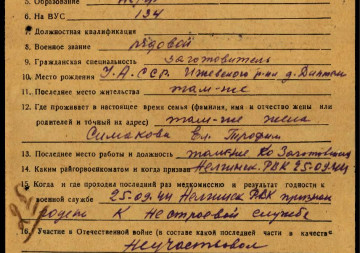 5. Образование
6. На ВУС 134
7. Должностная квалификация
8. Военное звание рядовой
9. Гражданская специальность заготовитель
10. Место рождения У.А.ССР. Ижевского р-на д.
11. Последнее место жительства там-же
12. Где проживает в настоящее время семья (фамилия, имя и отчество жены или
родителей и точный их адрес) там-же жена
Симакова Ел. Трофим
13. Последнее место работы и должность
14. Каким райгорвоенкоматом и когда призван РВК 25.09.44
15. Когда и где проходил последний раз медкомиссию и результат годности к
военной службе 25.09.44 РВК признан
годен к нестроевой службе
16. Участие в Отечественной войне (в составе какой последней части и в качестве
Неучаствовал